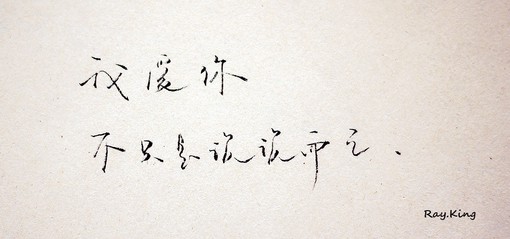 我爱你
不只是说说而已、
Ray.King